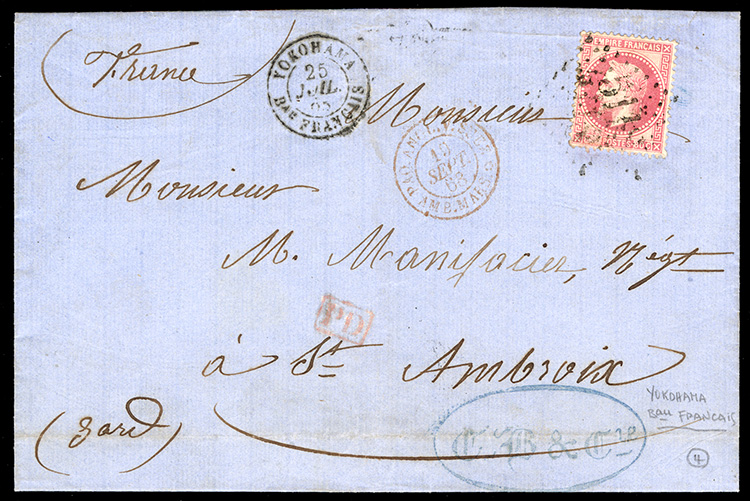 (France)
YOKOHAMA
25
JUIL.
Bau FRANÇAIS
EMPIRE FRANÇAIS
POSTES
Monsieur
SEPT.
AMB. MARS.
Monsieur
M. Manifacier, Négt
PD
à St Ambroix
(Gard)
C. B & Cie
YOKOHAMA
Bau FRANCAIS
4